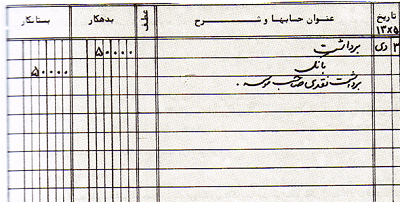 تاریخ ۱۳×۵ عنوان حسابها و شــرح عطف بدهکار بستانکار
۳ دی برداشت ۵۰۰۰۰
بانک ۵۰۰۰۰
برداشت نقدی صاحب موسسه.